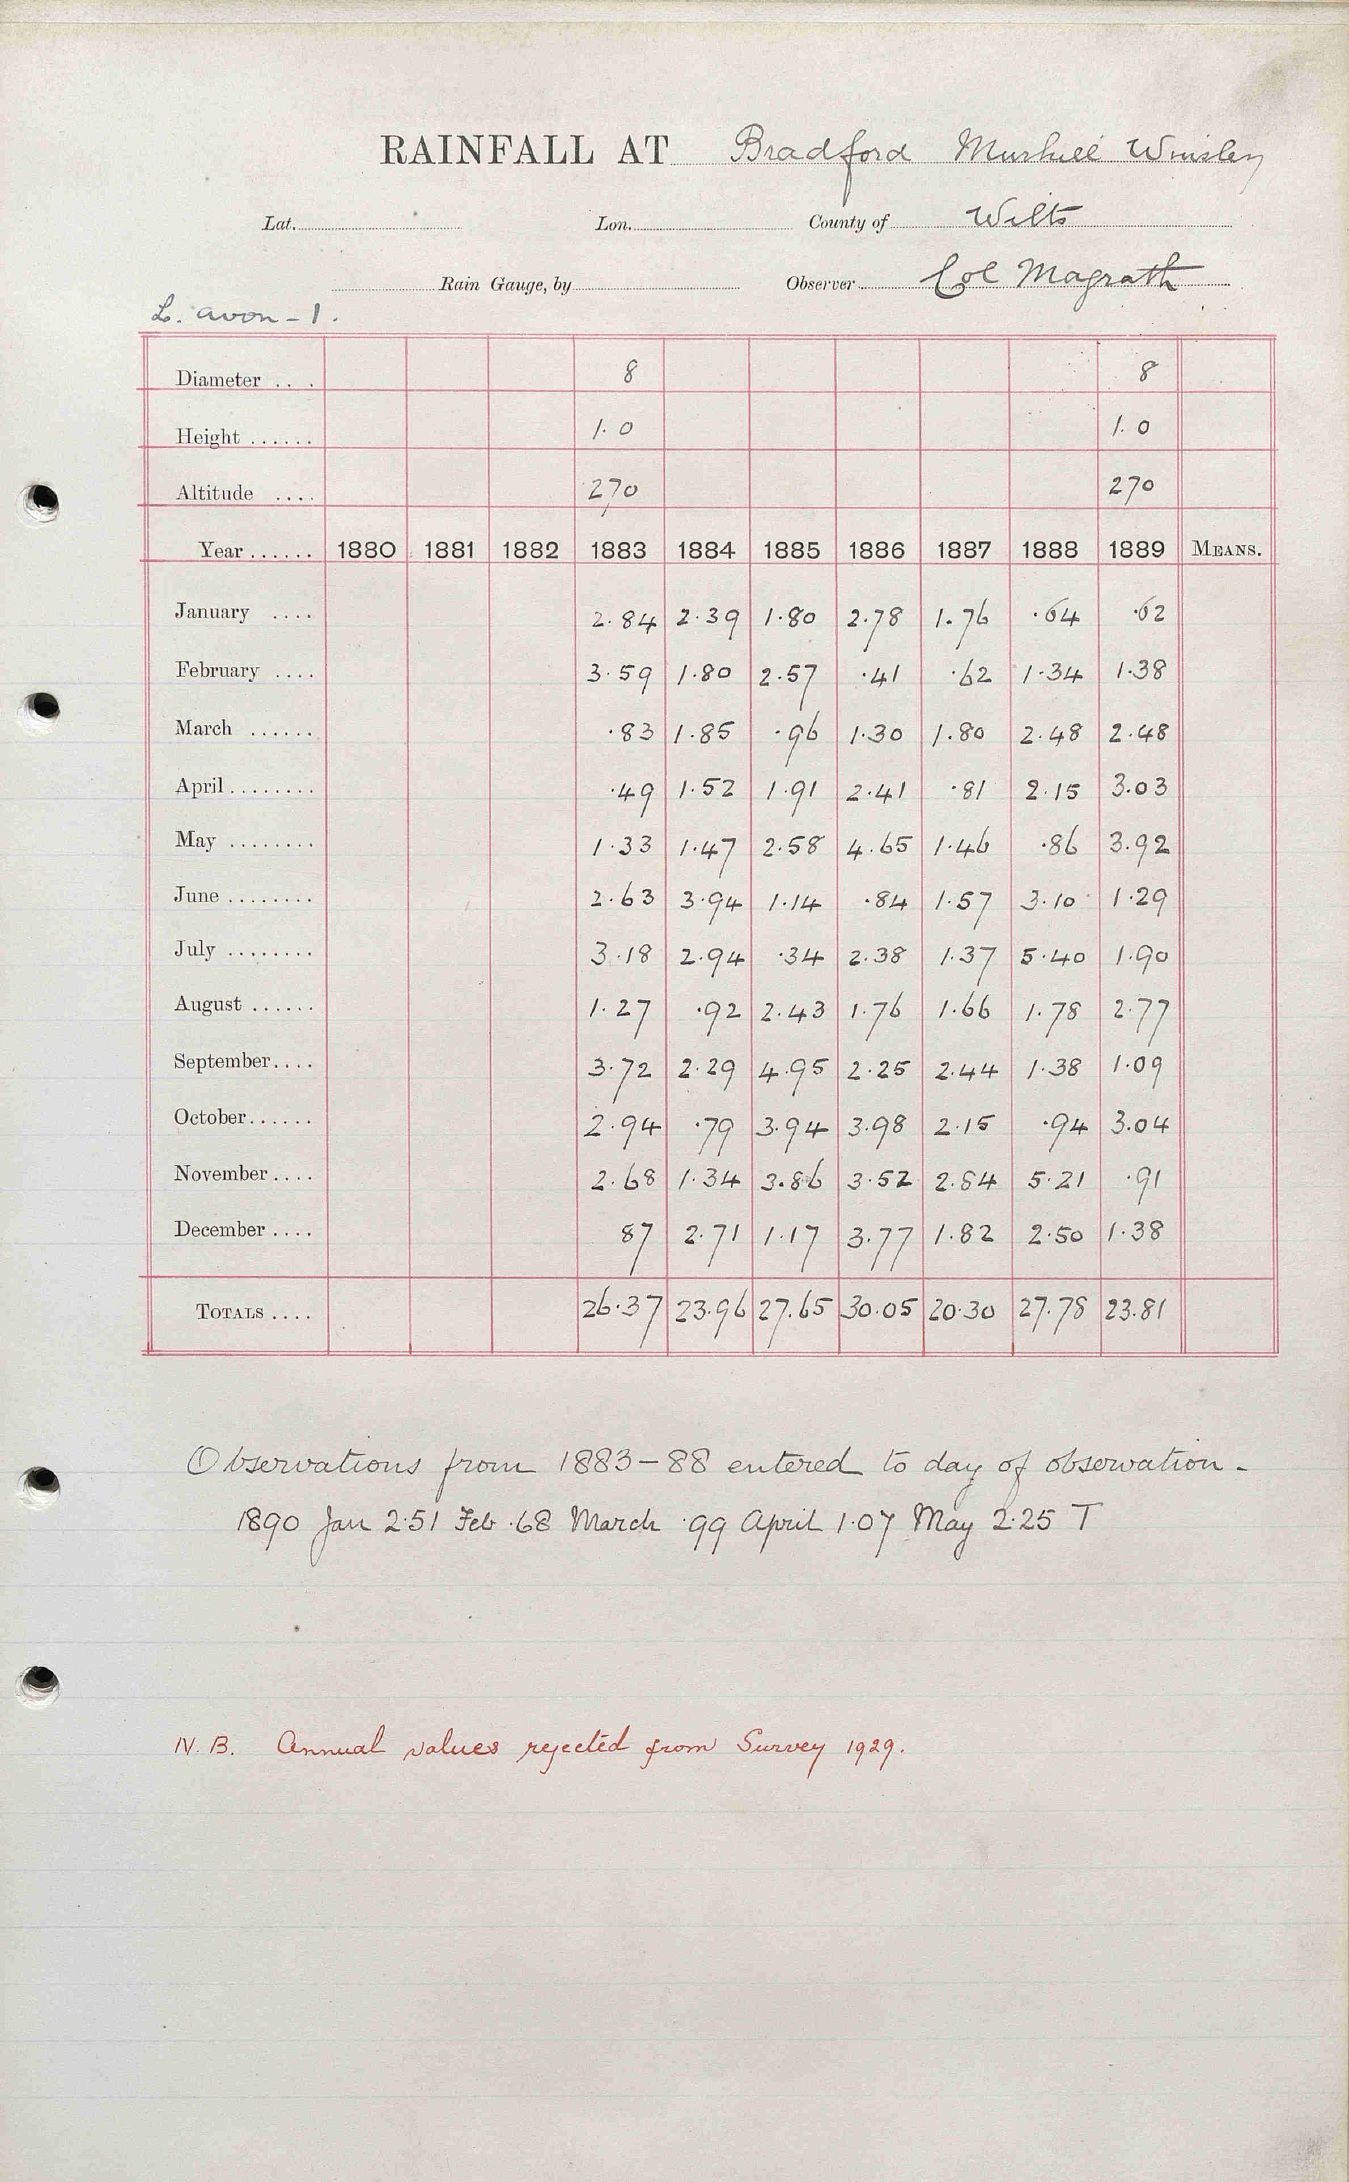 RAINFALL AT Bradford Murhill Winsley
Lat. Lon. County of Wilts
Rain Gauge, by Observer Col Magrath
L. Avon - 1.
Diameter ... 8 8
Height ...... 1.0 1.0
Altitude .... 270 270
Year ...... 1880 1881 1882 1883 1884 1885 1886 1887 1888 1889 MEANS.
January .... 2.84 2.39 1.80 2.78 1.76 .64 .62
February .... 3.59 1.80 2.57 .41 .62 1.34 1.38
March ...... .83 1.85 .96 1.30 1.80 2.48 2.48
April ........ .49 1.52 1.91 2.41 .81 2.15 3.03
May ........ 1.33 1.47 2.58 4.65 1.46 .86 3.92
June ........ 2.63 3.94 1.14 .84 1.57 3.10 1.29
July ........ 3.18 2.94 .34 2.38 1.37 5.40 1.90
August ...... 1.27 .92 2.43 1.76 1.66 1.78 2.77
September .... 3.72 2.29 4.95 2.25 2.44 1.38 1.09
October ...... 2.94 .79 3.94 3.98 2.15 .94 3.04
November .... 2.68 1.34 3.86 3.52 2.84 5.21 .91
December .... 87 2.71 1.17 3.77 1.82 2.50 1.38
TOTALS .... 26.37 23.96 27.65 30.05 20.30 27.78 23.81
Observations from 1883-88 entered to day of observation -
1890 Jan 2.51 Feb .68 March .99 April 1.07 May 2.25 T
N.B. Annual values rejected from Survey 1929.